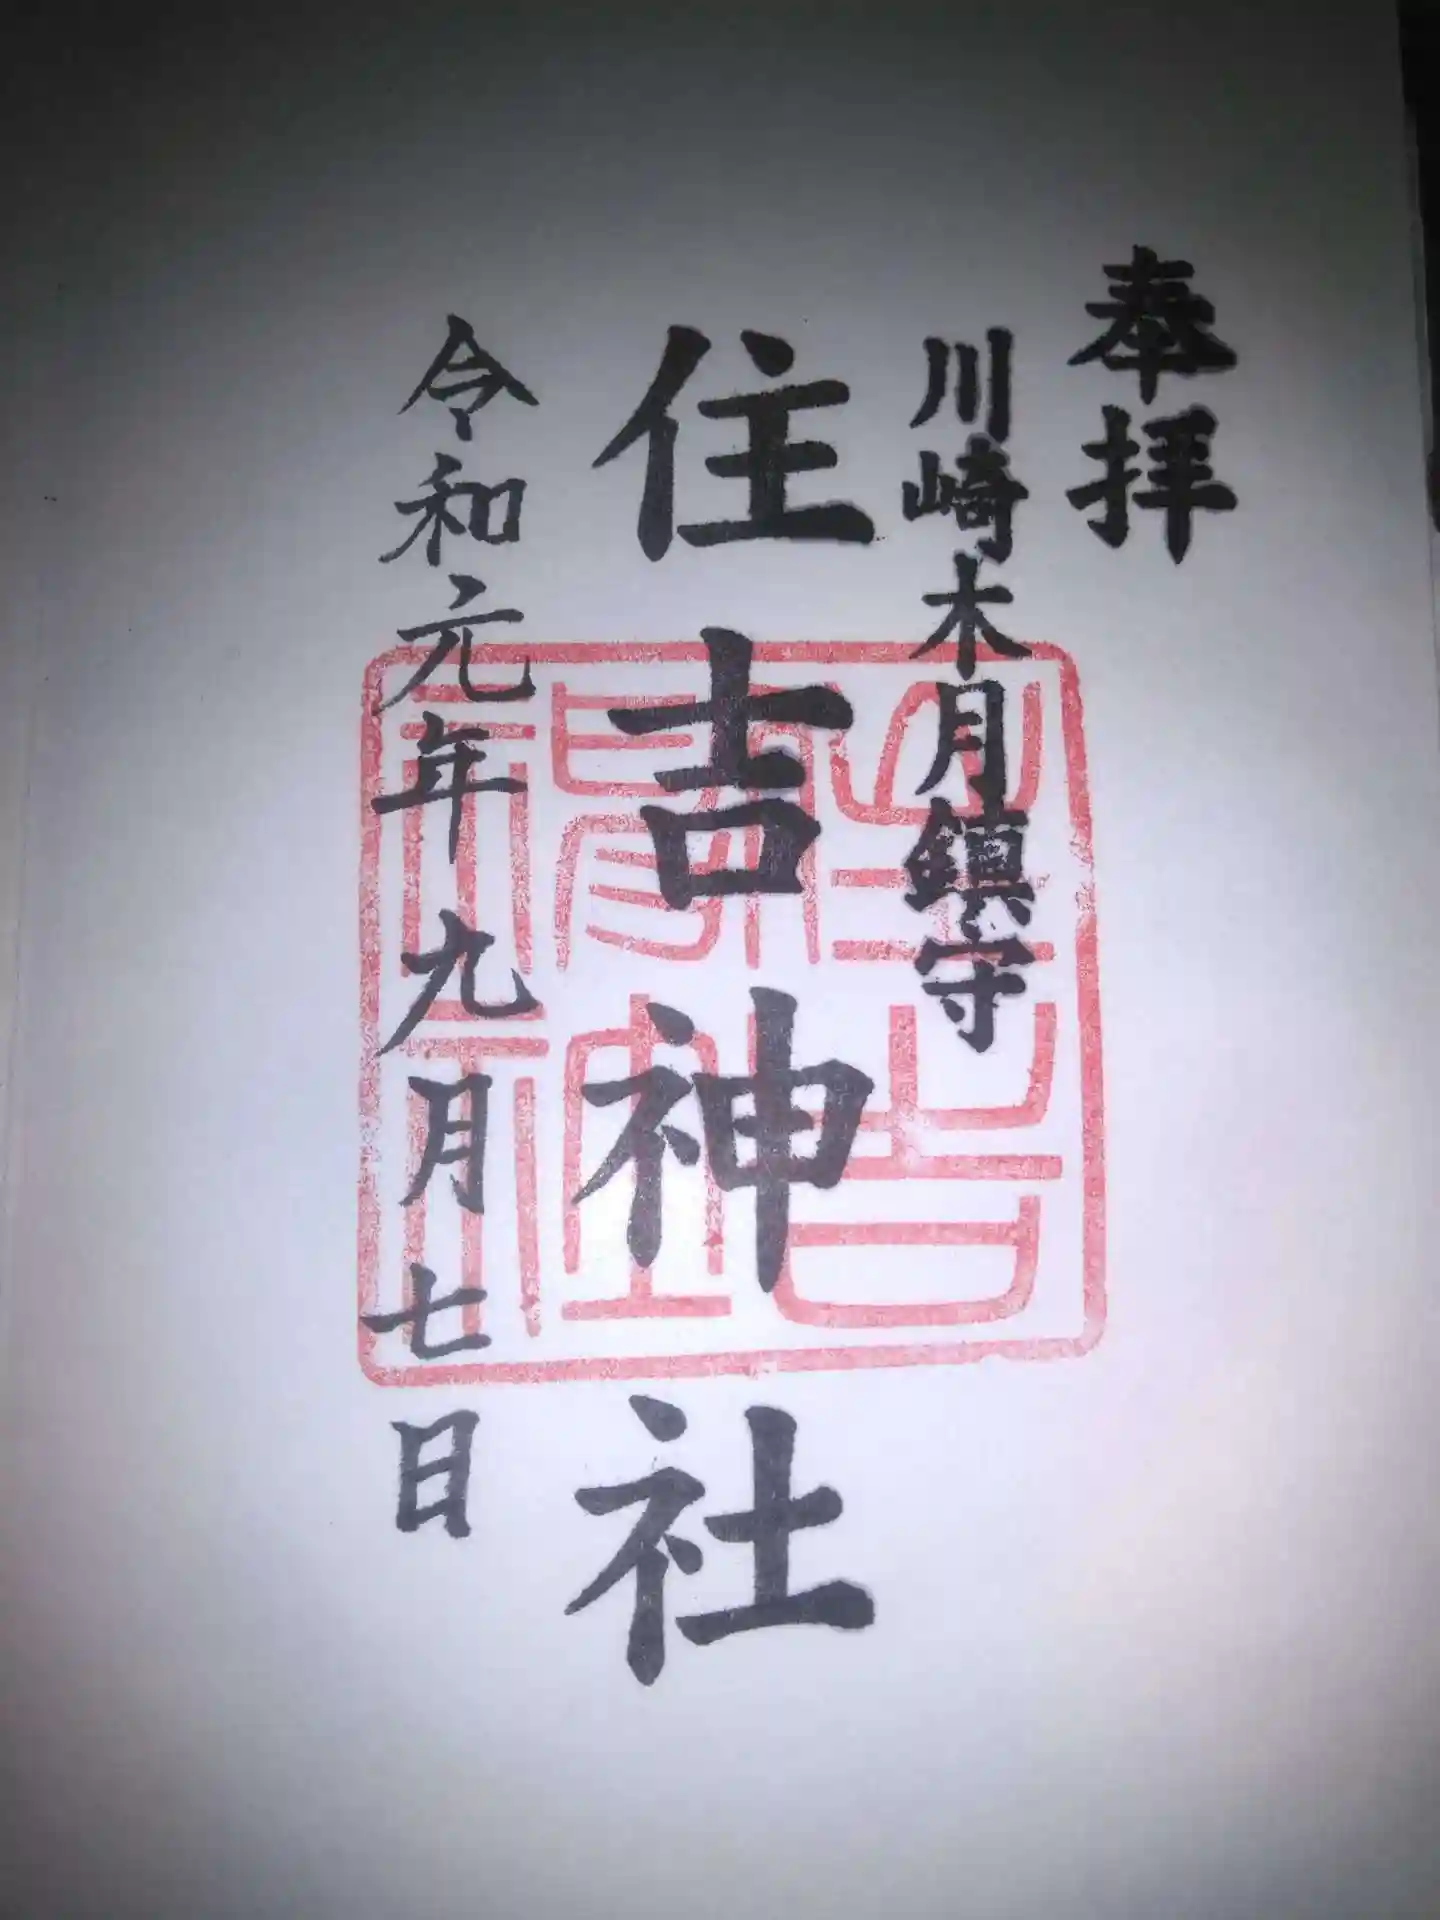 奉拝
川崎木月鎮守
住吉神社
令和元年九月七日
住吉
神社